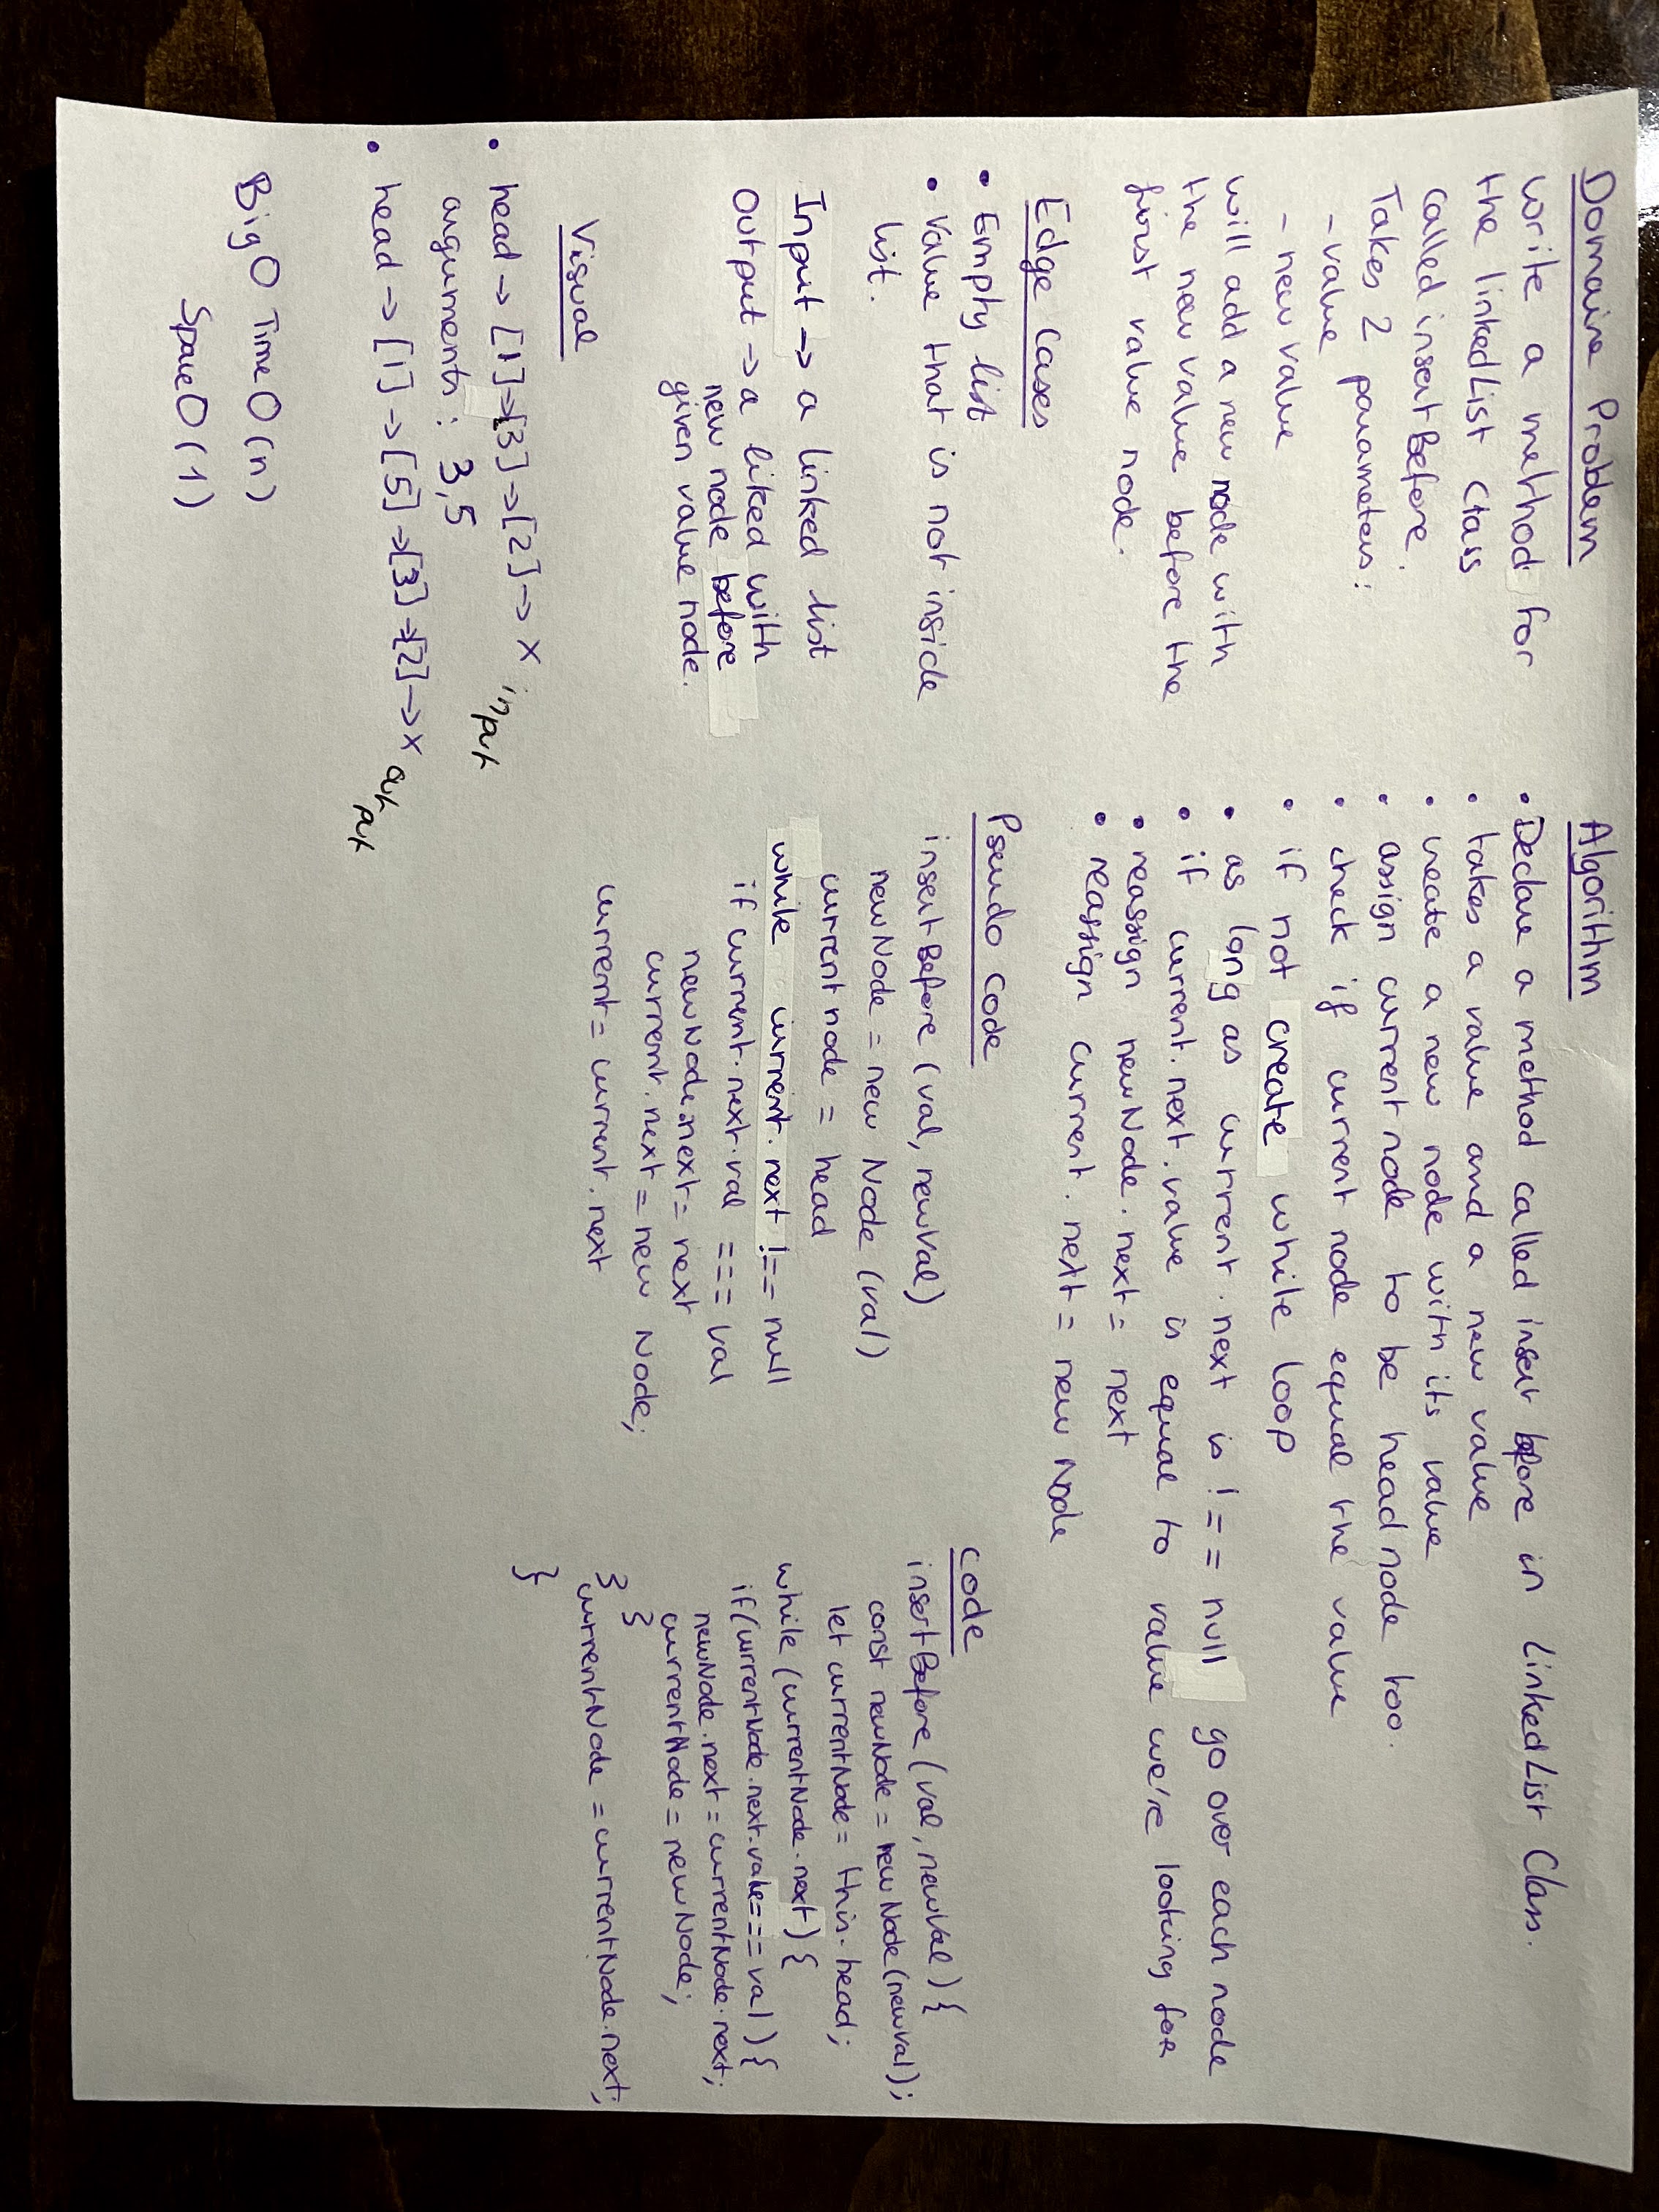 Domaine Problem
write a method for
the linkedList Class
called insertBefore.
Takes 2 parameters:
- value
- new value
will add a new node with
the new value before the
first value node.
Edge Cases
• Empty list
• Value that is not inside
list.
Input -> a linked list
Output -> a liked with
new node before
given value node.
Visual
• head -> [1]->[3]->[2]-> x input
arguments: 3,5
• head -> [1] ->[5]->[3]->[2]-> x output
Big O Time O(n)
Space O(1)
Algorithm
• Declare a method called insert before in LinkedList Class.
• takes a value and a new value
• create a new node with its value
• assign current node to be head node too.
• check if current node equal the value
• if not create while loop
• as long as current.next is !== null go over each node
• if current.next.value is equal to value we're looking for
• reassign newNode.next = next
• reassign current.next = new Node
Pseudo Code
insertBefore (val, newVal)
newNode = new Node (val)
current node = head
while current.next !== null
if current.next.val === val
newNode.next = next
current.next = new Node;
current = current.next
Code
insertBefore (val, newVal) {
const newNode = new Node (newVal);
let currentNode = this.head;
while (currentNode.next) {
if (currentNode.next.value === val) {
newNode.next = currentNode.next;
currentNode = newNode;
}
currentNode = currentNode.next;
}
}